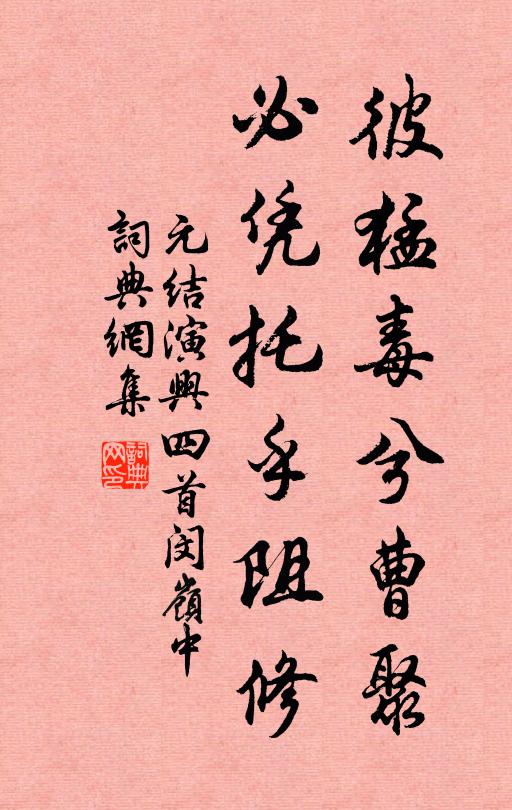 彼猛毒兮曹聚
必凭托乎阻修
元结演興四首闵嶺中
詞典網集
詞典网印